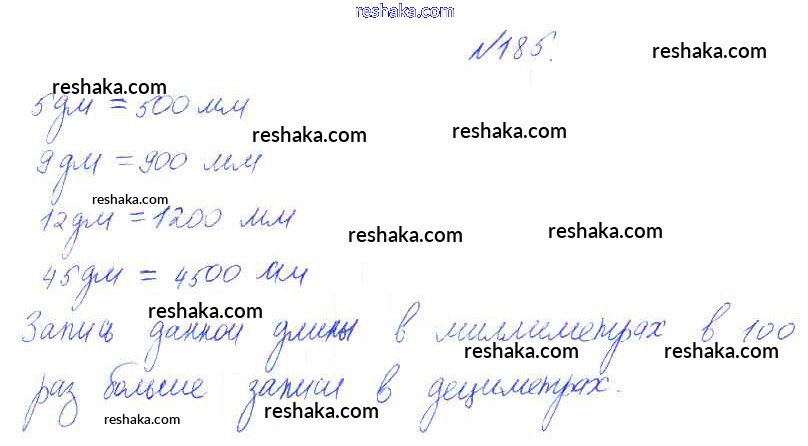 reshaka.com
№185.
reshaka.com
reshaka.com
5дм = 500 мм
reshaka.com
reshaka.com
9дм = 900 мм
reshaka.com
12дм = 1200 мм
reshaka.com
reshaka.com
45дм = 4500 мм
reshaka.com
Запись данной длины в миллиметрах в 100
reshaka.com
reshaka.com
раз больше записи в дециметрах.
reshaka.com
reshaka.com